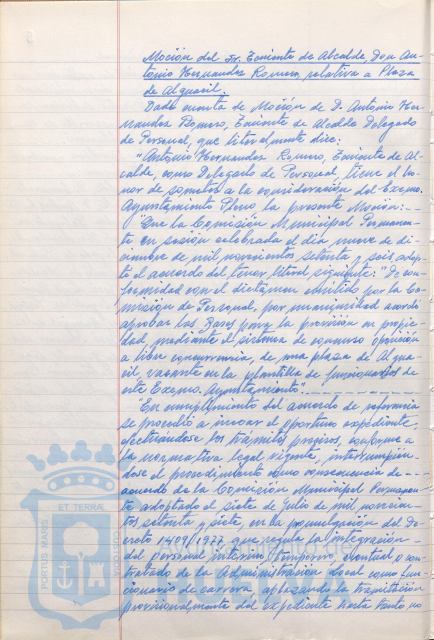 Moción del Sr. Teniente de Alcalde, Don An-
tonio Hernandez Romero, relativa a Plaza
de Alguacil.
Dada cuenta de Moción de D. Antonio Her-
nandez Romero, Teniente de Alcalde Delegado
de Personal, que literalmente dice:
"Antonio Hernandez Romero, Teniente de Al-
calde, como Delegado de Personal, tiene el ho-
nor de someter a la consideración del Excmo.
Ayuntamiento Pleno la presente Moción:-
Que la Comisión Municipal Permanen-
te en sesión celebrada el día nueve de di-
ciembre de mil novecientos setenta y seis adop-
tó el acuerdo del tenor literal siguiente: "De con-
formidad con el dictamen emitido por la Co-
misión de Personal, por unanimidad acordó
aprobar las Bases para la provisión en propie-
dad, mediante el sistema de concurso oposición
a libre concurrencia, de una plaza de Algua-
cil, vacante en la plantilla de funcionarios de
este Excmo. Ayuntamiento".
"En cumplimiento del acuerdo de referencia
se procedió a incoar el oportuno expediente,
efectuándose los trámites previos, conforme a
la normativa legal vigente, interrumpién-
dose el procedimiento como consecuencia de
acuerdo de la Comisión Municipal Permanen-
te adoptado el siete de Julio de mil novecien-
tos setenta y siete, en la promulgación del De-
creto 1409/1977 que regula la integración
del personal interino, temporero, eventual o con-
tratado de la Administración Local como fun-
cionario de carrera, aplazando la tramitación
provisionalmente del expediente hasta tanto no
PORTUS MARIS
ET TERRAE
CUSTODIA